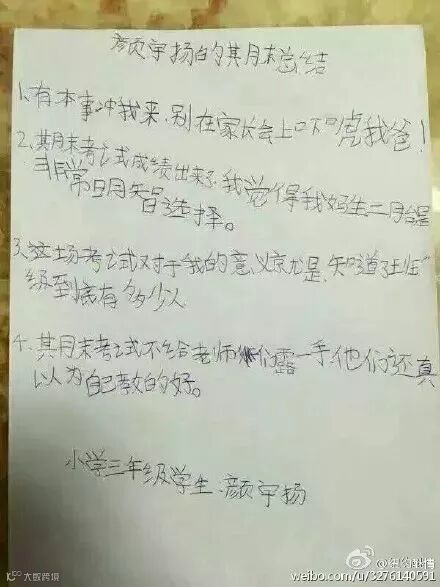 颜宇扬的其月末总结
1、有本事冲我来,别在家长会上口下口虎我爸!
2、其月末考试成绩出来了,我觉得我妈生二月台是
非常日月智选择。
3、这场考试对于我的意义京尤是,知道了班
级到底有多少人
4、其月末考试不给老师们露一手,他们还真
以为自己教的好。
小学三年级学生、颜宇扬
大数跨境
weibo.com/u/3276140591